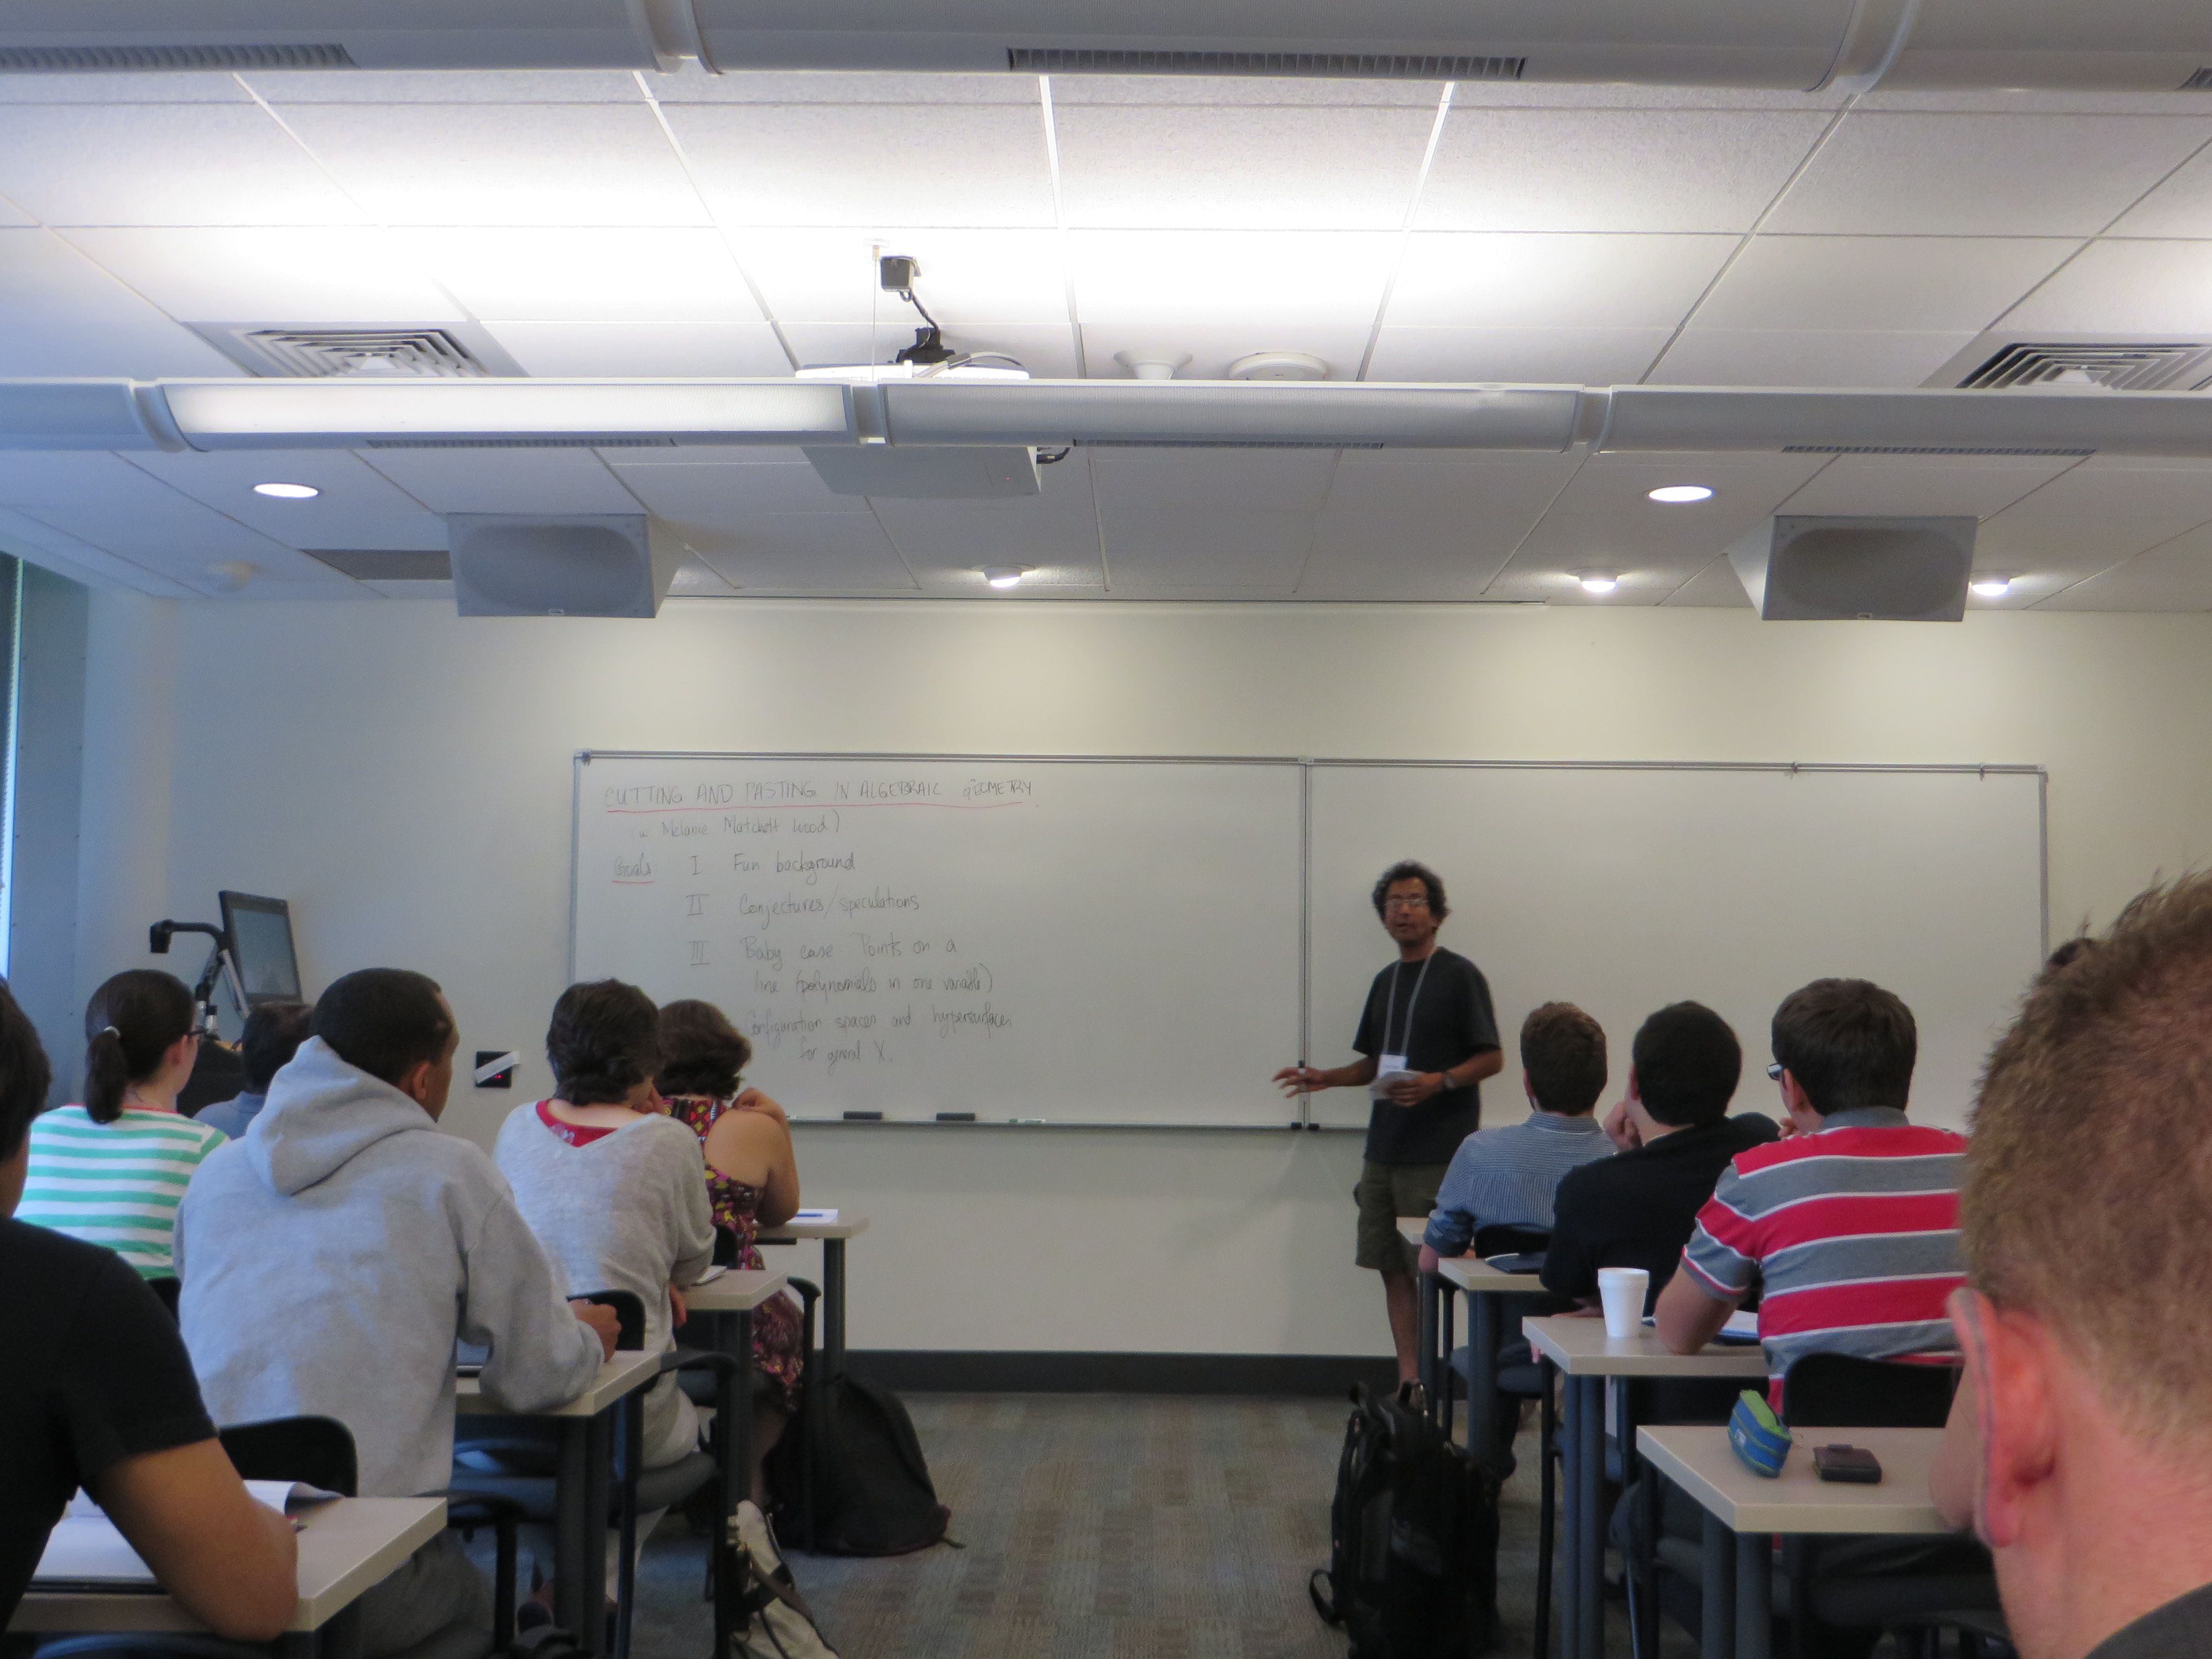 CUTTING AND PASTING IN ALGEBRAIC GEOMETRY
(w Melanie Matchett Wood)
Goals I Fun background
II Conjectures/speculations
III Baby case. Points on a
line (polynomials in one variable)
Configuration spaces and hypersurfaces
for general X.